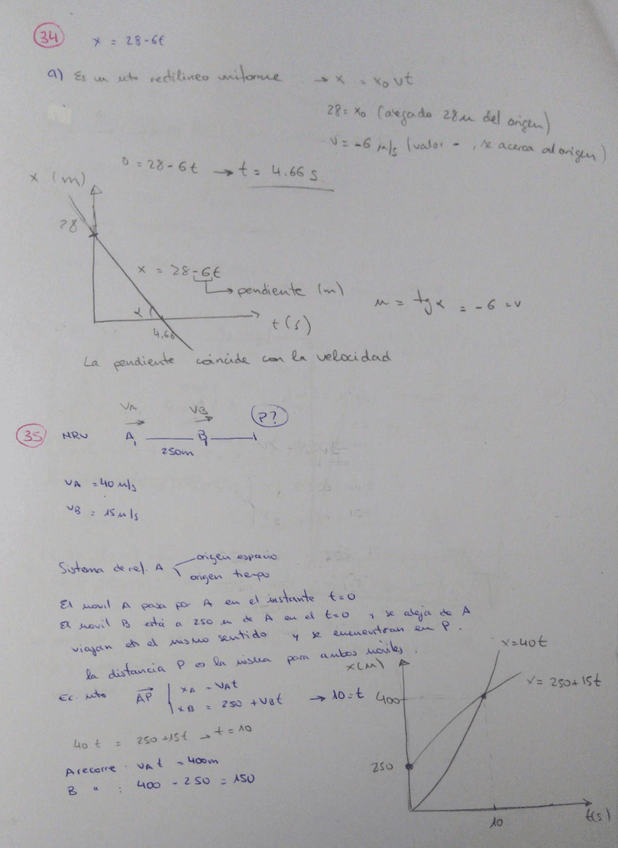 34 x = 28-6t
a) Es un mto rectilineo uniforme → x = x0 vt
28 = x0 (alejado 28m del origen)
v = -6 m/s (valor - , se acerca al origen)
0 = 28-6t → t = 4.66 s
x (m)
28
x = 28-6t
→ pendiente (m)
m = tg α = -6 = v
α
4.66
t(s)
La pendiente coincide con la velocidad
VA VB P?
35 MRU A B
250m
VA = 40 m/s
VB = 15 m/s
Sistema de ref. A origen espacio
origen tiempo
El movil A pasa por A en el instante t=0
El movil B está a 250 m de A en el t=0 y se aleja de A
viajan en el mismo sentido y se encuentran en P.
la distancia P es la misma para ambos móviles.
Ec. mto AP xA = VAt
xB = 250 + VBt → 10 = t
40t = 250+15t → t = 10
A recorre VAt = 400m
B " : 400 - 250 = 150
x(m)
x=40t
x=250+15t
400
250
10
t(s)